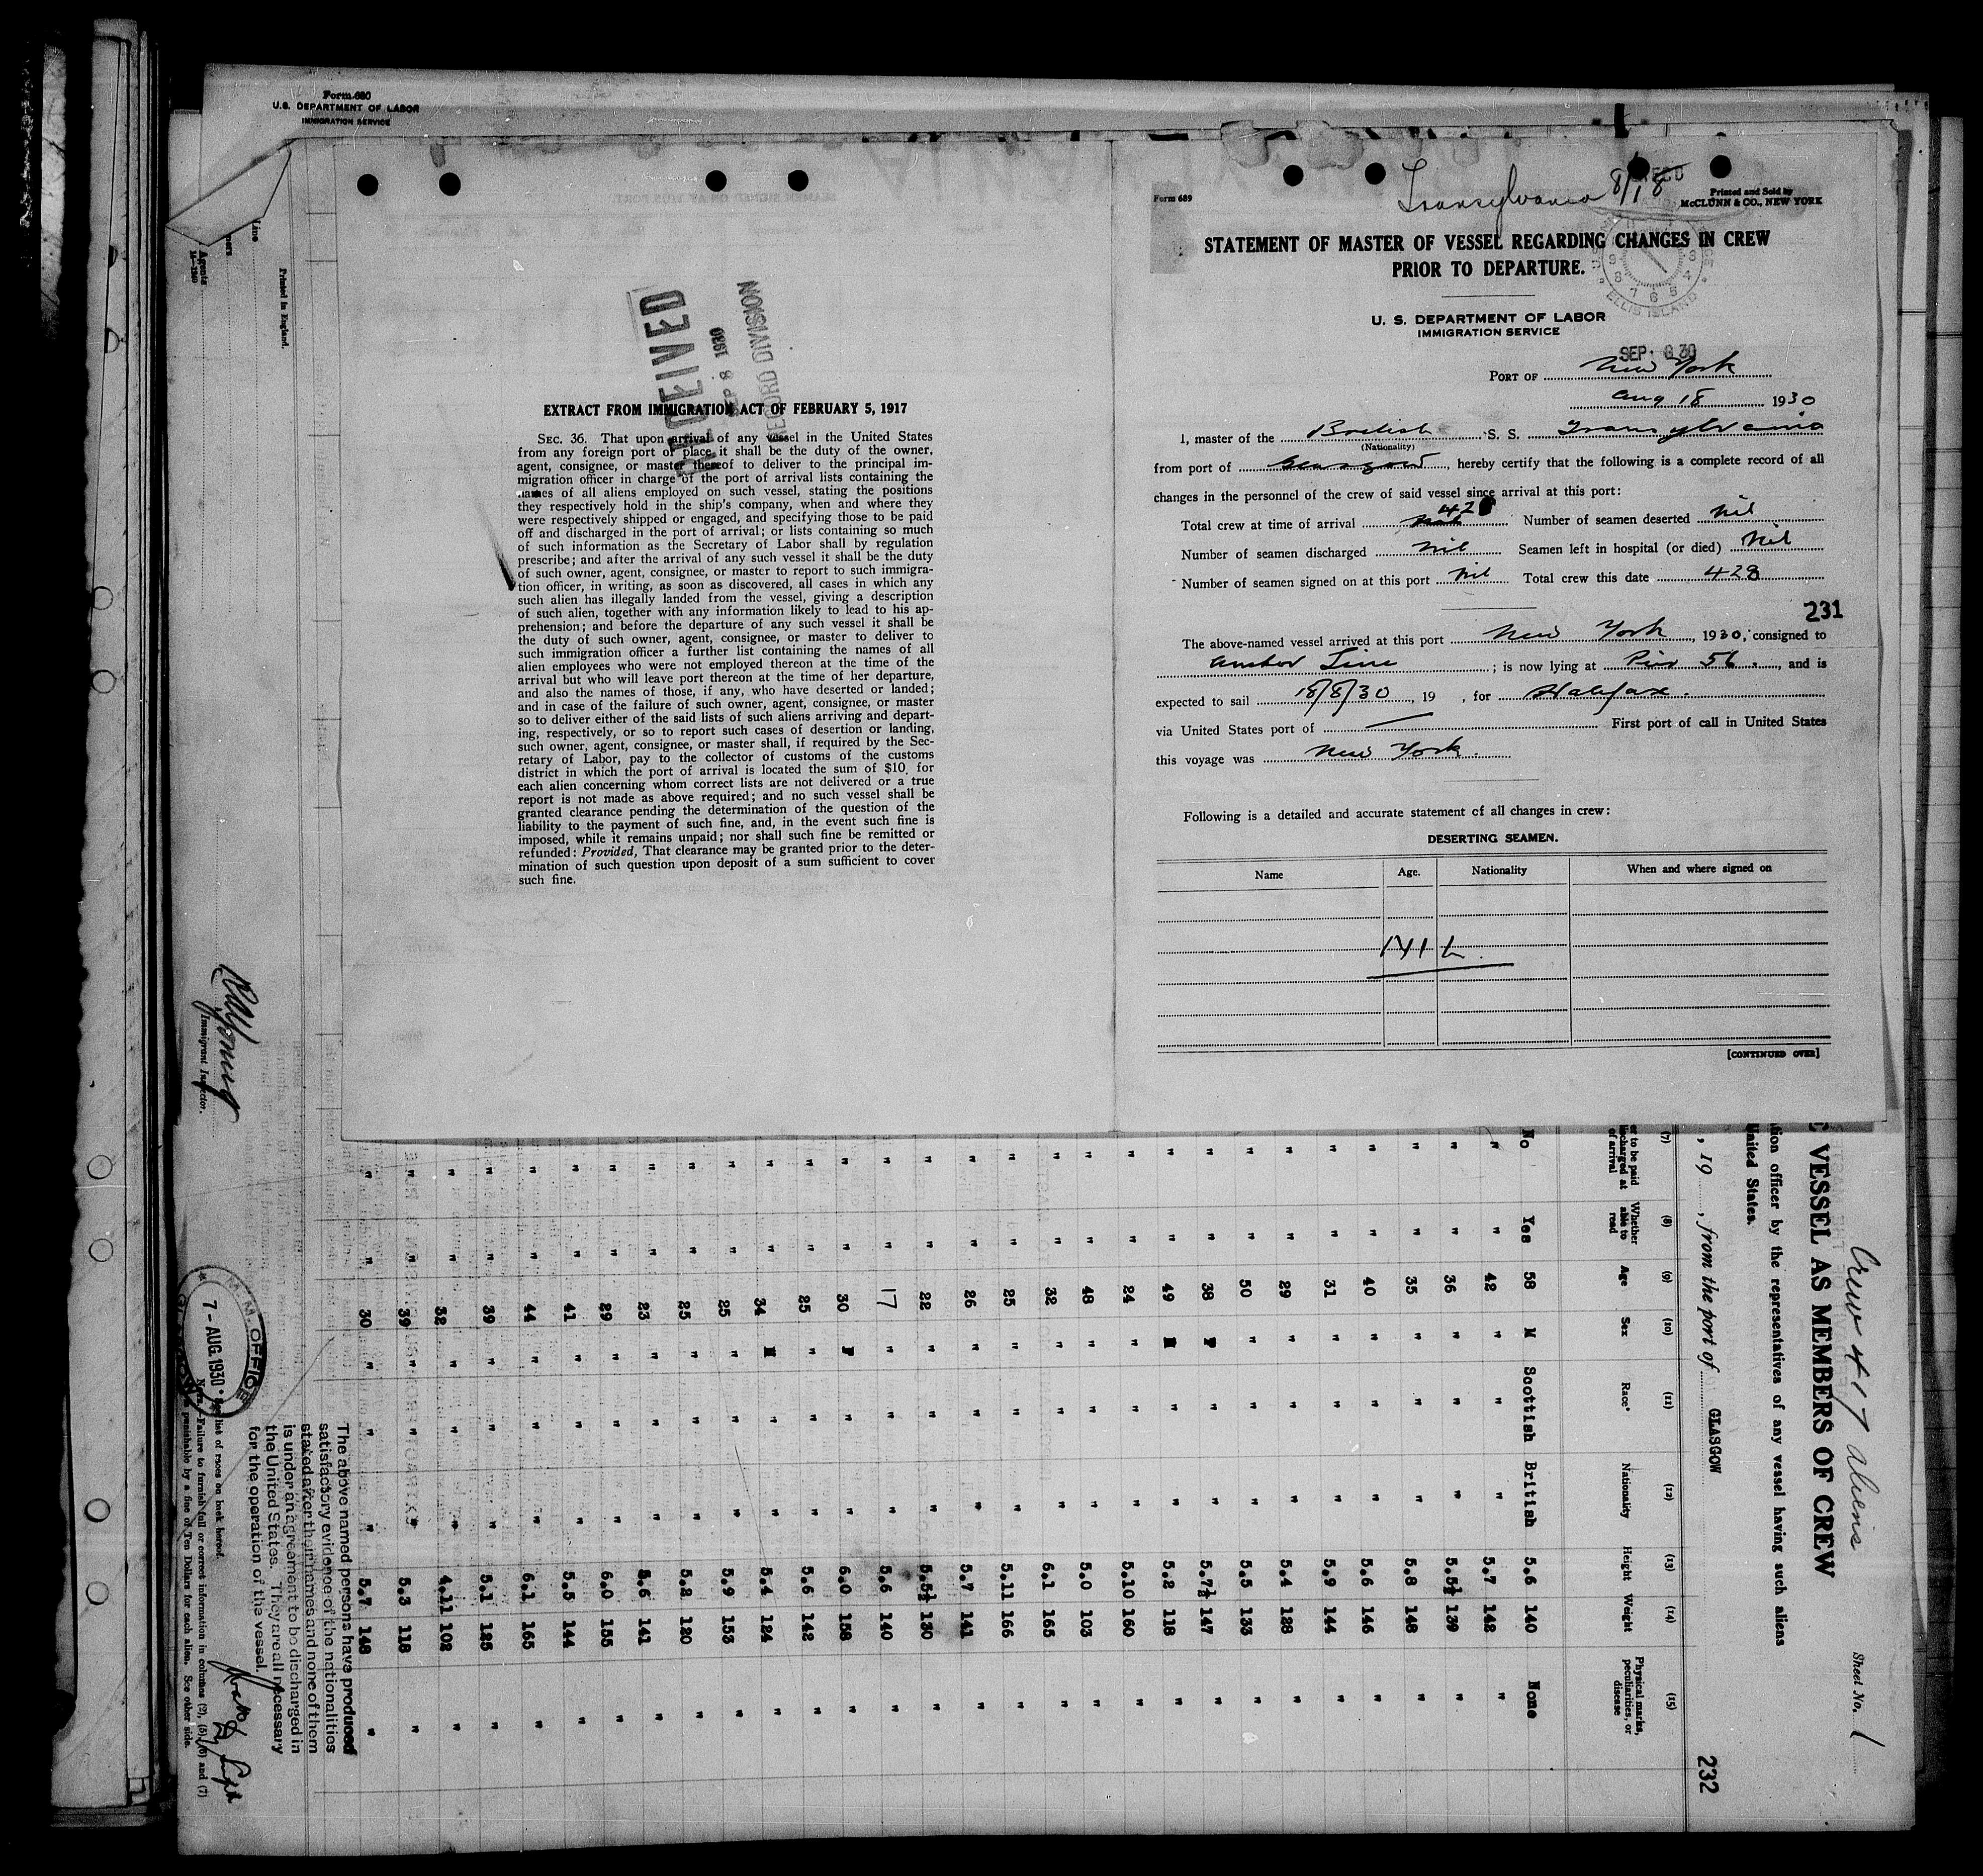 Form 680
U.S. DEPARTMENT OF LABOR
IMMIGRATION SERVICE
Line
Agents
Printed in England.
RECEIVED
1930
RECORD DIVISION
EXTRACT FROM IMMIGRATION ACT OF FEBRUARY 5, 1917
SEC. 36. That upon arrival of any vessel in the United States
from any foreign port or place it shall be the duty of the owner,
agent, consignee, or master thereof to deliver to the principal im-
migration officer in charge of the port of arrival lists containing the
names of all aliens employed on such vessel, stating the positions
they respectively hold in the ship's company, when and where they
were respectively shipped or engaged, and specifying those to be paid
off and discharged in the port of arrival; or lists containing so much
of such information as the Secretary of Labor shall by regulation
prescribe; and after the arrival of any such vessel it shall be the duty
of such owner, agent, consignee, or master to report to such immigra-
tion officer, in writing, as soon as discovered, all cases in which any
such alien has illegally landed from the vessel, giving a description
of such alien, together with any information likely to lead to his ap-
prehension; and before the departure of any such vessel it shall be
the duty of such owner, agent, consignee, or master to deliver to
such immigration officer a further list containing the names of all
alien employees who were not employed thereon at the time of the
arrival but who will leave port thereon at the time of her departure,
and also the names of those, if any, who have deserted or landed;
and in case of the failure of such owner, agent, consignee, or master
so to deliver either of the said lists of such aliens arriving and depart-
ing, respectively, or so to report such cases of desertion or landing,
such owner, agent, consignee, or master shall, if required by the Sec-
retary of Labor, pay to the collector of customs of the customs
district in which the port of arrival is located the sum of $10. for
each alien concerning whom correct lists are not delivered or a true
report is not made as above required; and no such vessel shall be
granted clearance pending the determination of the question of the
liability to the payment of such fine, and, in the event such fine is
imposed, while it remains unpaid; nor shall such fine be remitted or
refunded: Provided, That clearance may be granted prior to the deter-
mination of such question upon deposit of a sum sufficient to cover
such fine.
Transylvania 8/18
Form 689
Printed and Sold by
McCLUNN & CO., NEW YORK
STATEMENT OF MASTER OF VESSEL REGARDING CHANGES IN CREW
PRIOR TO DEPARTURE.
ELLIS ISLAND
U. S. DEPARTMENT OF LABOR
IMMIGRATION SERVICE
SEP 8 30
PORT OF New York
Aug 18 1930
I, master of the British S. S. Transylvania
(Nationality)
from port of Glasgow, hereby certify that the following is a complete record of all
changes in the personnel of the crew of said vessel since arrival at this port:
Total crew at time of arrival 428 Number of seamen deserted Nil
Number of seamen discharged Nil Seamen left in hospital (or died) Nil
Number of seamen signed on at this port Nil Total crew this date 428
231
The above-named vessel arrived at this port New York, 1930, consigned to
Anchor Line; is now lying at Pier 56, and is
expected to sail 18/8/30, 19 , for Halifax.
via United States port of — First port of call in United States
this voyage was New York.
Following is a detailed and accurate statement of all changes in crew:
DESERTING SEAMEN.
Name Age. Nationality When and where signed on
Nil
[CONTINUED OVER]
Crew 417 Aliens
Sheet No. 1
VESSEL AS MEMBERS OF CREW
tion officer by the representatives of any vessel having such aliens
United States.
, 19 , from the port of GLASGOW
232
(7) (8) (9) (10) (11) (12) (13) (14) (15)
er to be paid discharged at of arrival Whether able to read Age Sex Race* Nationality Height Weight Physical marks, peculiarities, or disease
No Yes 58 M Scottish British 5.6 140 None
" " 42 " " " 5.7 142 "
" " 36 " " " 5.5½ 139 "
" " 35 " " " 5.8 148 "
" " 40 " " " 5.6 146 "
" " 31 " " " 5.9 144 "
" " 29 " " " 5.4 128 "
" " 50 " " " 5.5 133 "
" " 38 F " " 5.7½ 147 "
" " 49 M " " 5.2 118 "
" " 24 " " " 5.10 160 "
" " 48 " " " 5.0 103 "
" " 32 " " " 6.1 165 "
" " 25 " " " 5.11 166 "
" " 26 " " " 5.7 141 "
" " 22 " " " 5.5½ 130 "
" " 17 " " " 5.6 140 "
" " 30 F " " 6.0 158 "
" " 25 " " " 5.6 142 "
" " 34 M " " 5.4 124 "
" " 25 " " " 5.9 153 "
" " 25 " " " 5.2 120 "
" " 23 " " " 5.6 141 "
" " 29 " " " 6.0 155 "
" " 41 " " " 5.5 144 "
" " 44 " " " 6.1 165 "
" " 39 " " " 5.1 125 "
" " 32 " " " 4.11 102 "
" " 39 " " " 5.3 118 "
" " 30 " " " 5.7 148 "
The above named persons have produced
satisfactory evidence of the nationalities
stated after their names and none of them
is under an agreement to be discharged in
the United States. They are all necessary
for the operation of the vessel.
Immigrant Inspector.
M. M. OFFICE
7 - AUG. 1930
list of races on back hereof.
NOTE.—Failure to furnish full or correct information in columns (2), (5), (6) and (7)
punishable by a fine of Ten Dollars for each alien. See other side.